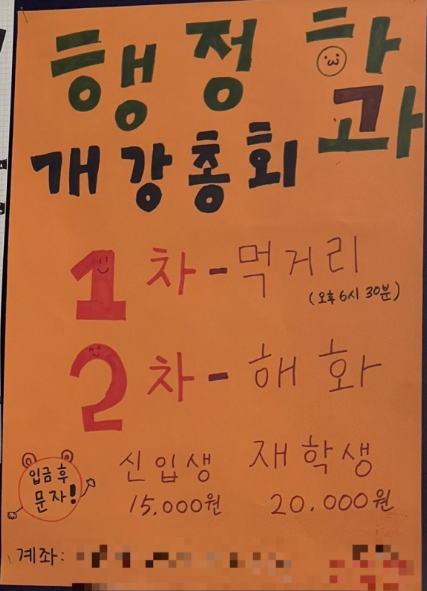 행정학과
개강총회
1차-먹거리
(오후 6시 30분)
2차-해화
신입생 재학생
15,000원 20,000원
입금 후
문자!
계좌: